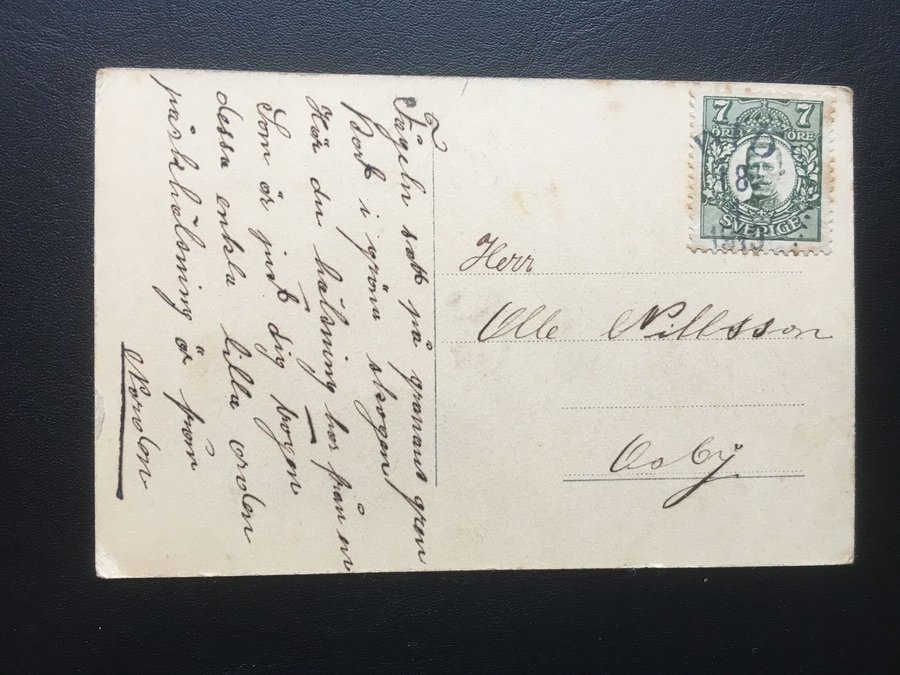 Fågeln satt på granaus gren
Bort i gröna skogen
Hör du hälsning har från en
Som är just dig trogen
dessa enkla lilla orden
påskhälsning är från
Norden
7 7
ÖRE ÖRE
SVERIGE
18
1913
Herr
Olle Nillsson
Osby